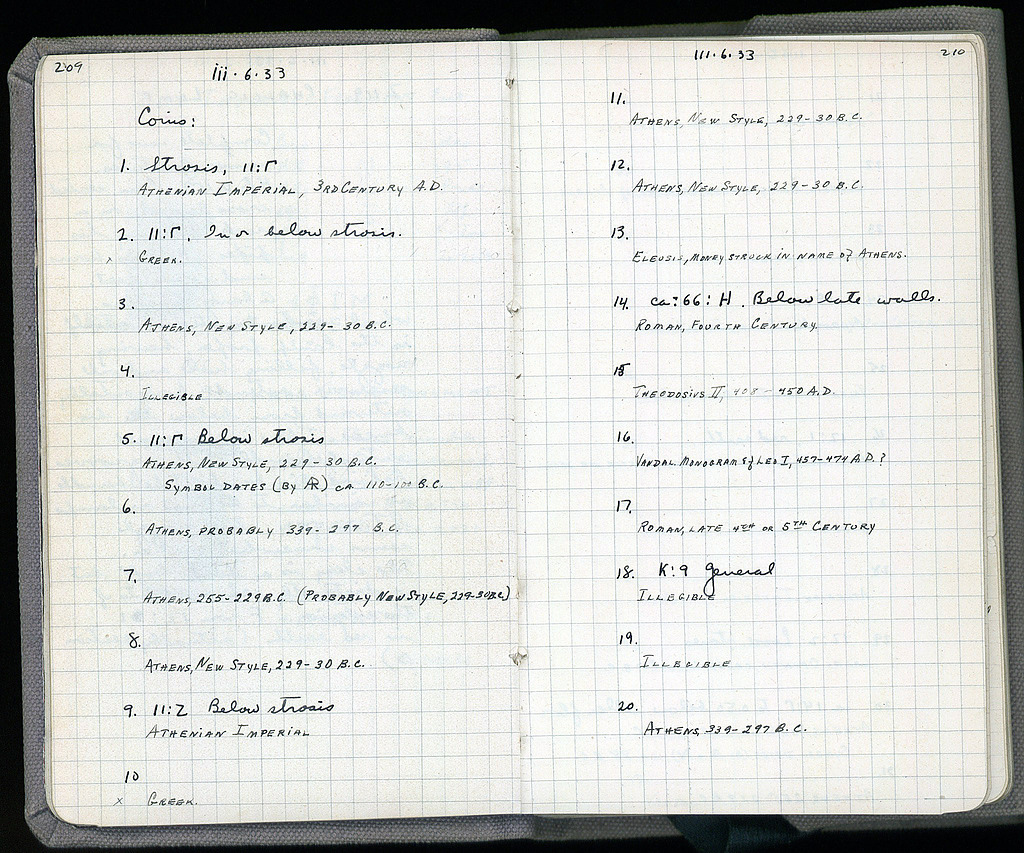 209
iii·6·33
Coins:
1. Strosis, 11:Γ
ATHENIAN IMPERIAL, 3RD CENTURY A.D.
2. 11:Γ. In or below strosis.
x GREEK.
3.
ATHENS, NEW STYLE, 229-30 B.C.
4.
ILLEGIBLE
5. 11:Γ Below strosis
ATHENS, NEW STYLE, 229-30 B.C.
SYMBOL DATES (BY AR) CA 110-100 B.C.
6.
ATHENS, PROBABLY 339-297 B.C.
7.
ATHENS, 255-229 B.C. (PROBABLY NEW STYLE, 229-30 B.C.)
8.
ATHENS, NEW STYLE, 229-30 B.C.
9. 11:Z Below strosis
ATHENIAN IMPERIAL
10
x GREEK.
111·6·33
210
11.
ATHENS, NEW STYLE, 229-30 B.C.
12.
ATHENS, NEW STYLE, 229-30 B.C.
13.
ELEUSIS, MONEY STRUCK IN NAME OF ATHENS.
14. ca:66:H. Below late walls.
ROMAN, FOURTH CENTURY.
15
THEODOSIUS II, 408-450 A.D.
16.
VANDAL MONOGRAM OF LEO I, 457-474 A.D.?
17.
ROMAN, LATE 4TH OR 5TH CENTURY
18. K:9 General
ILLEGIBLE
19.
ILLEGIBLE
20.
ATHENS, 339-297 B.C.